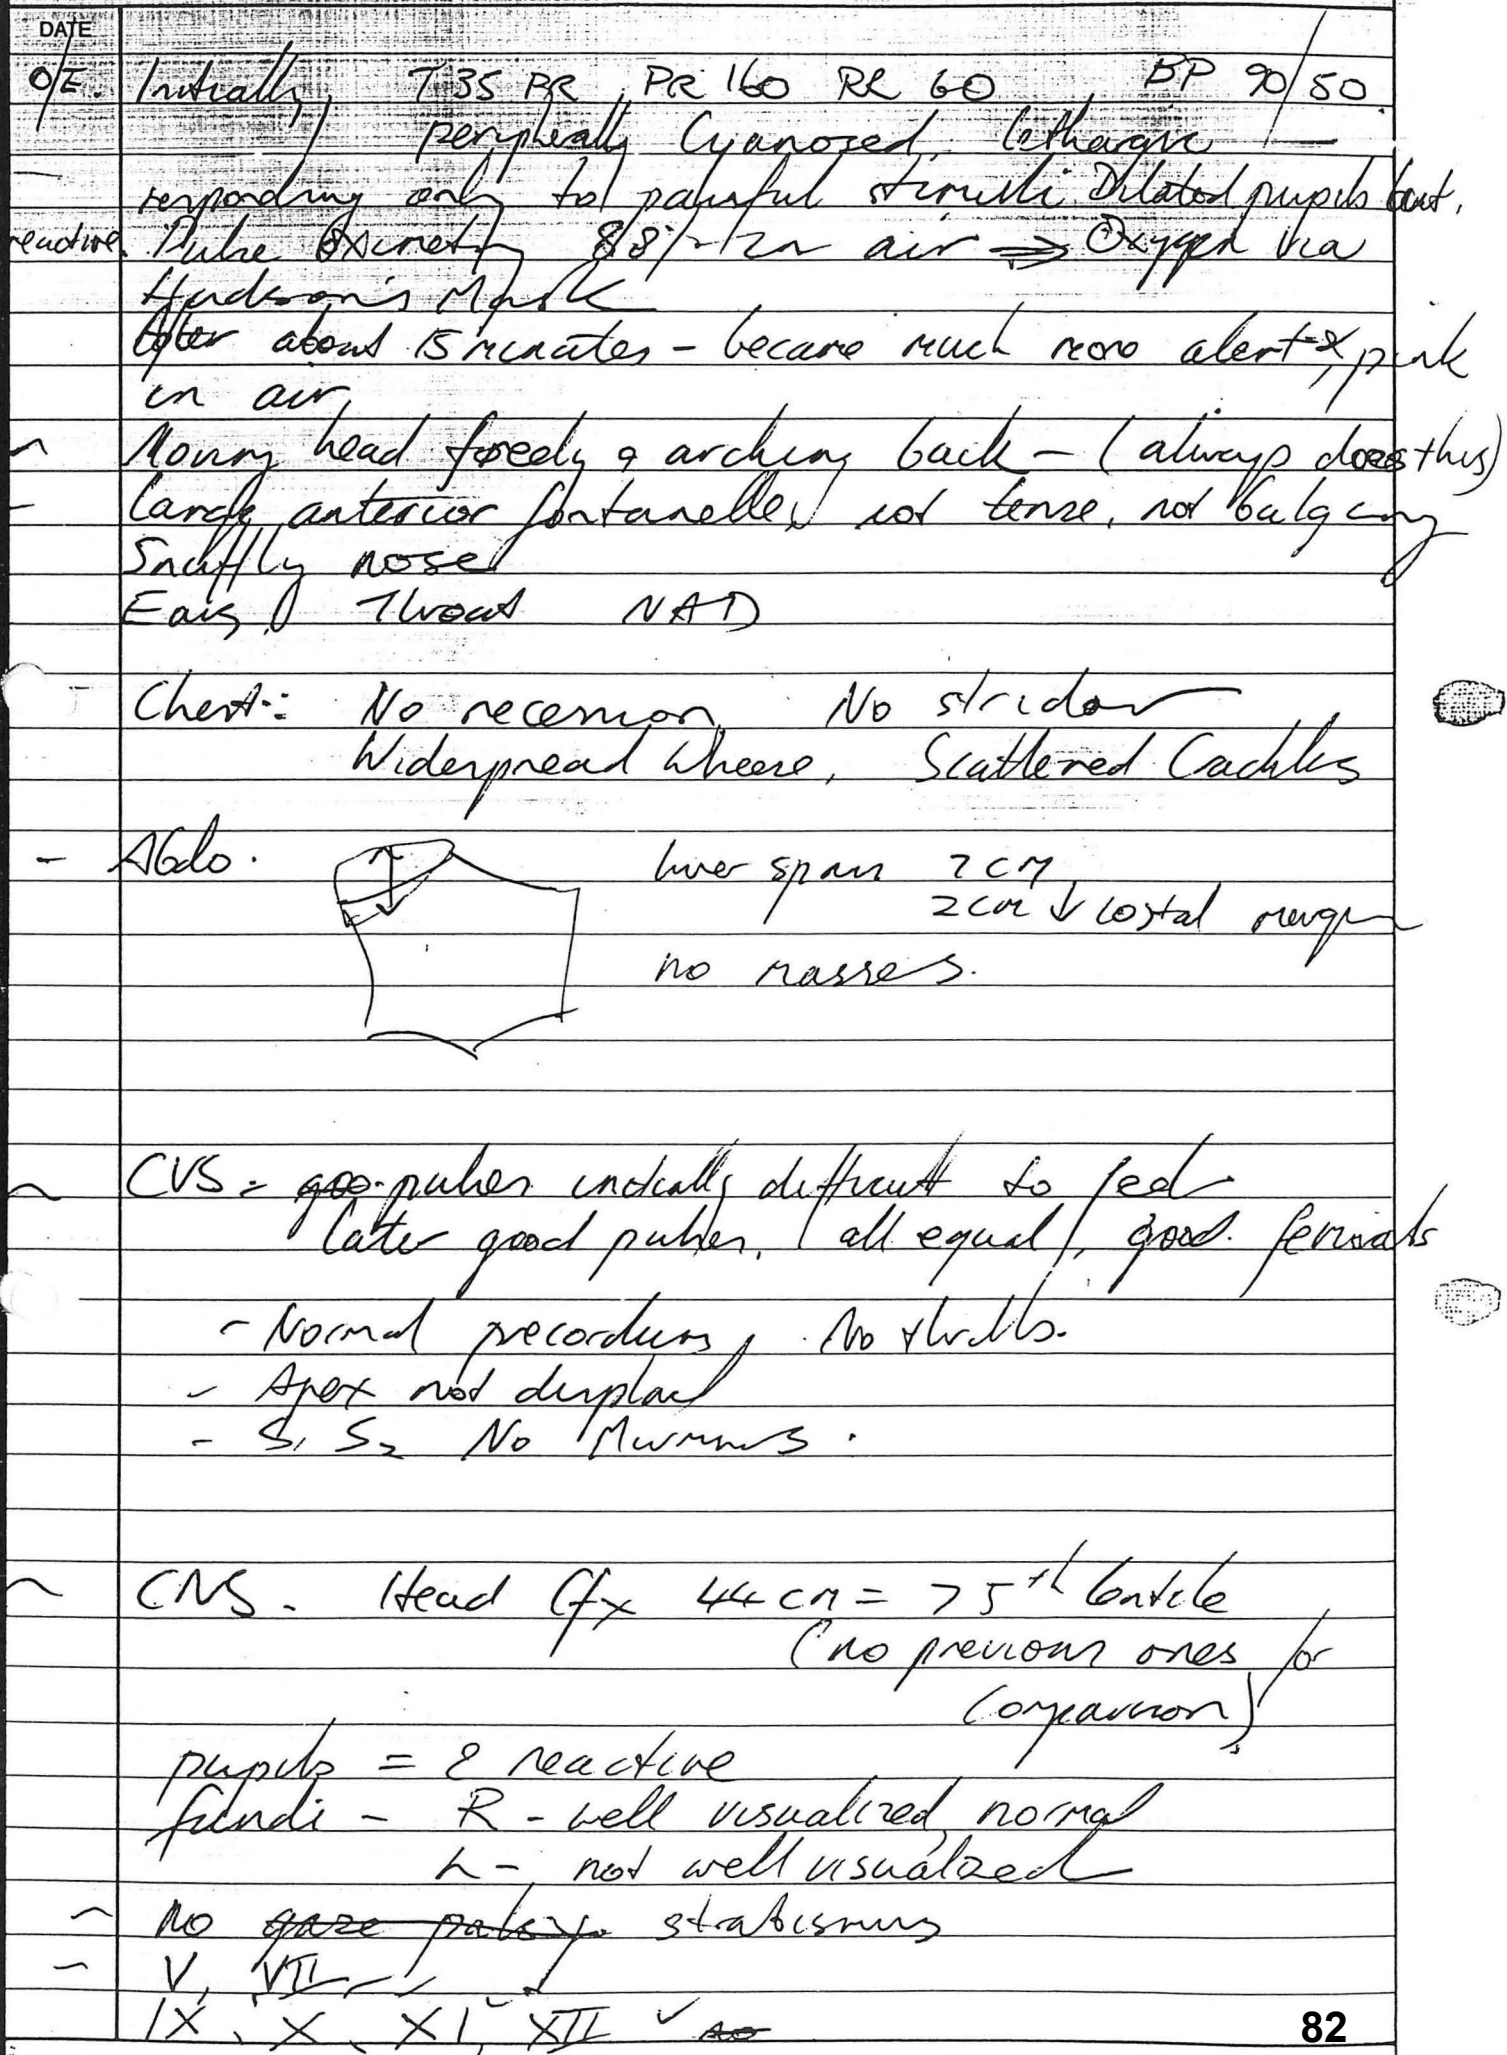 DATE
O/E. Initially, T 35 PR, PR 160 RR 60, BP 90/50.
peripherally Cyanosed, lethargic
responding only to painful stimuli. Dilated pupils but
reactive. Pulse Oximetry 88% in air ⇒ Oxygen via
Hudson's Mask
After about 15 minutes - became much more alert &, pink
in air,
Moving head freely & arching back - (always does this)
Large anterior fontanelle, not tense, not bulging
Snuffly nose
Ears, Throat NAD
Chest: No recession, No stridor
Widespread wheeze, Scattered Crackles
- Abdo. liver span 7cm
2cm ↓ costal margin
no masses.
CVS = goo pulses initially difficult to feel
later good pulses. (all equal), good femorals
- Normal precordium, No thrills.
- Apex not displaced
- S1 S2 No Murmurs.
CNS. Head Cfx 44cm = 75th Centile
(no previous ones for
comparison)
pupils = & reactive
fundi - R - well visualized, normal
L - not well visualized
No gaze palsy strabismus
V, VII
IX, X, XI, XII ✓
82